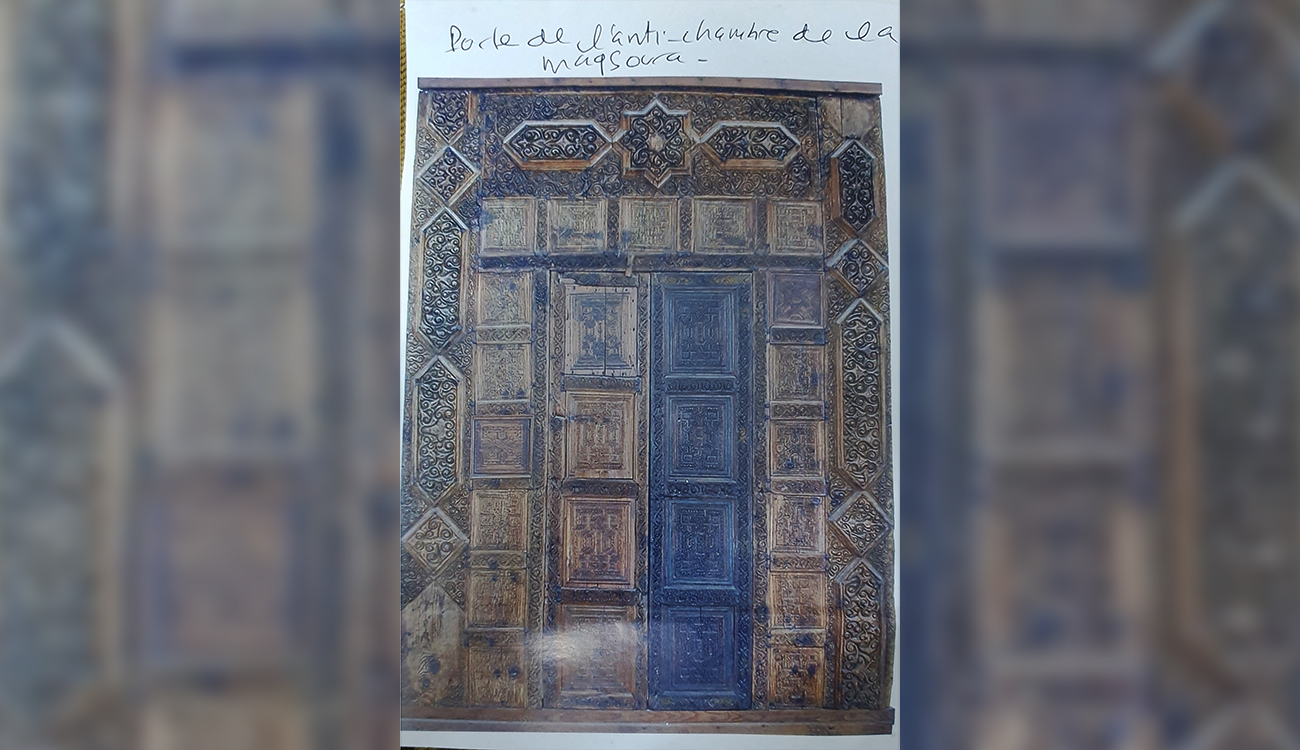 Porte de l'anti-chambre de la
maqsoura -